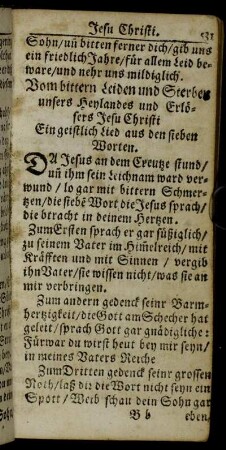 Jesu Christi.
131
Sohn/ uñ bitten ferner dich/ gib uns
ein friedlich Jahre/ für allem Leid be-
ware/ und nehr uns mildiglich.
Vom bittern Leiden und Sterben
unsers Heylandes und Erlö-
sers Jesu Christi
Ein geistlich Lied aus den sieben
Worten.
DA Jesus an dem Creutze stund/
uñ ihm sein Leichnam ward ver-
wund/ so gar mit bittern Schmer-
tzen/ die siebē Wort die Jesus sprach/
die btracht in deinem Hertzen.
Zum Ersten sprach er gar süßiglich/
zu seinem Vater im Him̃elreich/ mit
Kräfften und mit Sinnen / vergib
ihn Vater/ sie wissen nicht/ was sie an
mir verbringen.
Zum andern gedenck seinr Barm-
hertzigkeit/ die Gott am Schecher hat
geleit/ sprach Gott gar gnädigliche:
Fürwar du wirst heut bey mir seyn/
in meines Vaters Reiche
Zum Dritten gedenck seinr grossen
Noth/ laß dir die Wort nicht seyn ein
Spott/ Weib schau dein Sohn gar
B b
eben/